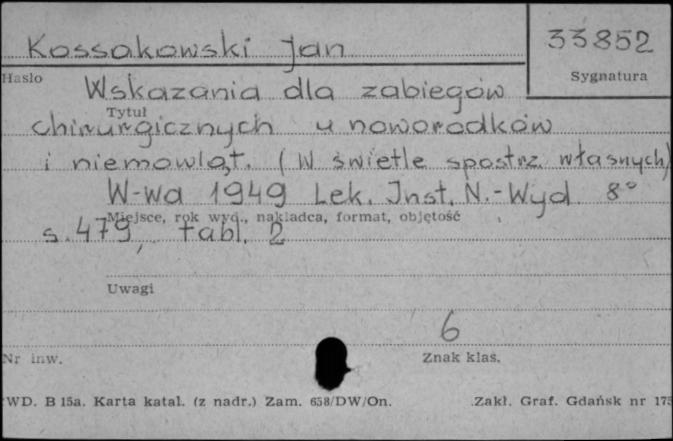 Kossakowski Jan
33852
Hasło
Sygnatura
Wskazania dla zabiegów
Tytuł
chirurgicznych u noworodków
i niemowląt. (W świetle spostrz. własnych)
W-wa 1949 Lek. Inst. N.-Wyd. 8°
Miejsce, rok wyd., nakładca, format, objętość
s. 479, tabl. 2
Uwagi
6
Nr inw.
Znak klas.
WD. B 15a. Karta katal. (z nadr.) Zam. 658/DW/On.
Zakł. Graf. Gdańsk nr 175